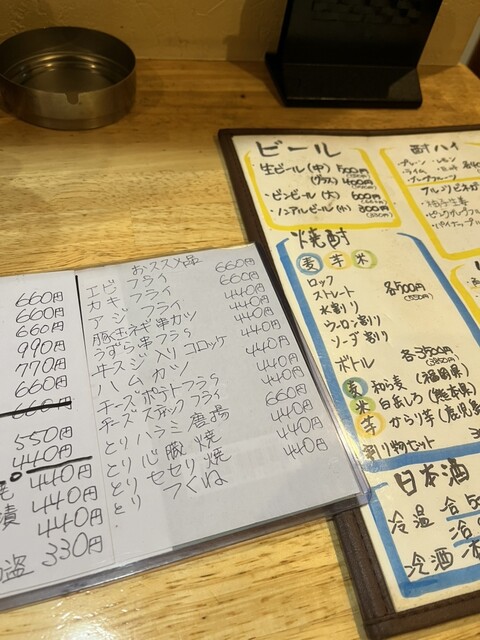 660円
660円
660円
990円
770円
660円
660円
550円
440円
440円
漬 440円
440円
盗 330円
おススメ品
エビフライ 660円
カキフライ 660円
アジフライ 440円
豚玉ネギ串カツ 440円
うずら串フライ 440円
牛スジ入りコロッケ 440円
ハムカツ 440円
チーズポテトフライ 440円
チーズスティックフライ 440円
とりハラミ唐揚 660円
とり心臓焼 440円
とりセセリ焼 440円
とりつくね 440円
ビール
生ビール(中) 500円
(550円)
(グラス) 400円
(440円)
・ビンビール(大) 600円
(660円)
・ノンアルビール(小) 300円
(330円)
焼酎
麦 芋 米
ロック
ストレート
水割り
ウーロン割り
ソーダ割り
各500円
(550円)
ボトル 各3500円
(3850円)
麦 和ら麦 (福岡県)
米 白岳しろ (熊本県)
芋 からり芋 (鹿児島
割り物セット
日本酒
冷温 合
冷酒
酎ハイ
・プレーン ・レモン
・ライム